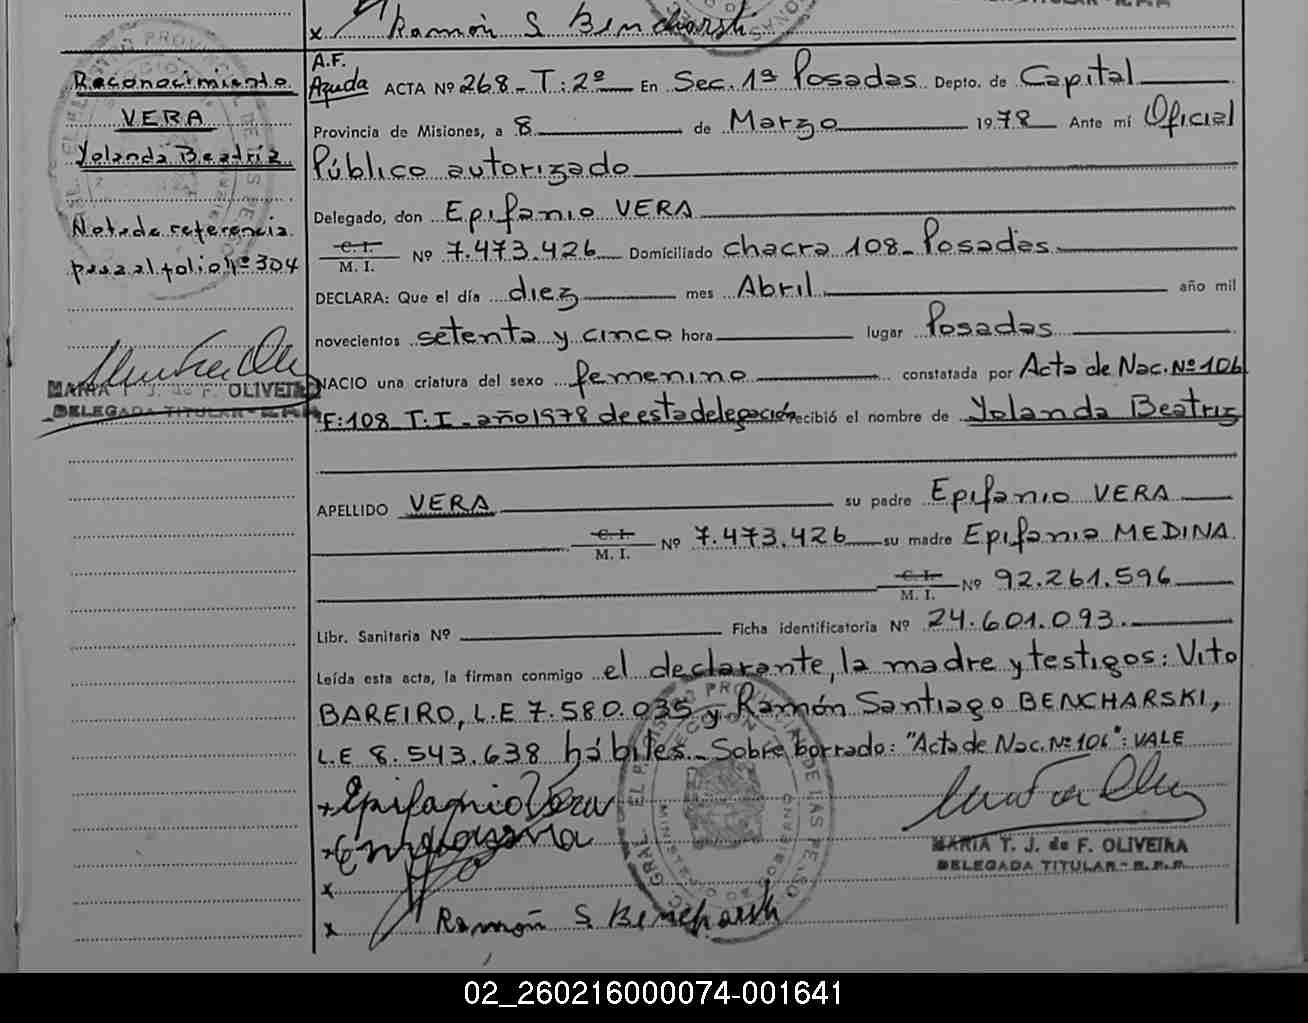 x Ramón S Bencharski
Reconocimiento
VERA
Yolanda Beatriz
Nota de referencia
pasa al folio Nº 304
MARIA T. J. de F. OLIVEIRA
DELEGADA TITULAR - R.P.P.
A.F.
Ayuda ACTA Nº 268 - T: 2º En Sec. 1ª Posadas Depto. de Capital
Provincia de Misiones, a 8 de Marzo 1978 Ante mí Oficial
Público autorizado
Delegado, don Epifanio VERA
C. I.
M. I. Nº 7.473.426 Domiciliado chacra 108 - Posadas
DECLARA: Que el día diez mes Abril año mil
novecientos setenta y cinco hora lugar Posadas
NACIO una criatura del sexo femenino constatada por Acta de Nac. Nº 106
F: 108 T. I - año 1978 de esta delegación recibió el nombre de Yolanda Beatriz
APELLIDO VERA su padre Epifanio VERA
C. I.
M. I. Nº 7.473.426 su madre Epifania MEDINA
C. I.
M. I. Nº 92.261.596
Libr. Sanitaria Nº Ficha identificatoria Nº 24.601.093.
Leída esta acta, la firman conmigo el declarante, la madre y testigos: Vito
BAREIRO, L.E 7.580.035 y Ramón Santiago BENCHARSKI,
L.E 8.543.638 hábiles.- Sobre borrado: "Acta de Nac. Nº 106": VALE
x Epifanio Vera
x
x
x Ramón S. Bencharski
MARIA T. J. de F. OLIVEIRA
DELEGADA TITULAR - R.P.P.
02_260216000074-001641